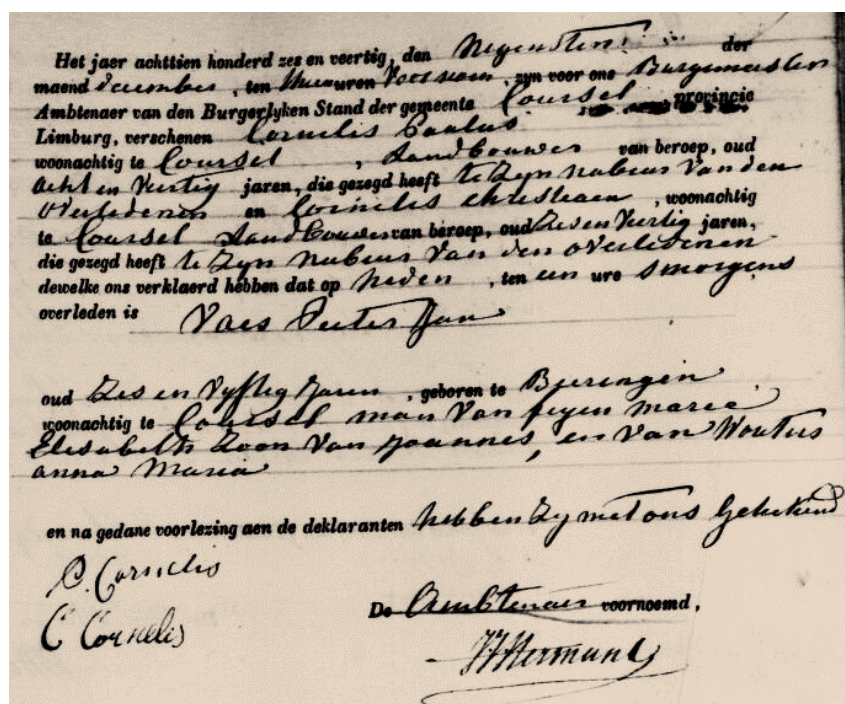 Het jaer achttien honderd zes en veertig, den Negensten der
maend december, ten uren Voor, zyn voor ons Burgemeester
Ambtenaer van den Burgerlyken Stand der gemeente Coursel provincie
Limburg, verschenen Cornelis Paulus
woonachtig te Coursel, Landbouwer van beroep, oud
acht en Veertig jaren, die gezegd heeft te Zyn nabuur Van den
Overledenen en Cornelis christiaen, woonachtig
te Coursel Landbouwer van beroep, oud Zes en Veertig jaren,
die gezegd heeft te Zyn nabuur Van den overledenen
dewelke ons verklaerd hebben dat op heden, ten een ure smorgens
overleden is Vaes Peeter Jan
oud Zes en Vyftig Jaren, geboren te Beeringen
woonachtig te Coursel man Van maria
Elisabeth Zoon Van Joannes, en Van Wouters
anna Maria
en na gedane voorlezing aen de deklaranten hebben Zy met ons Getekend
P. Cornelis
C Cornelis
De Ambtenaer voornoemd,
Hermans